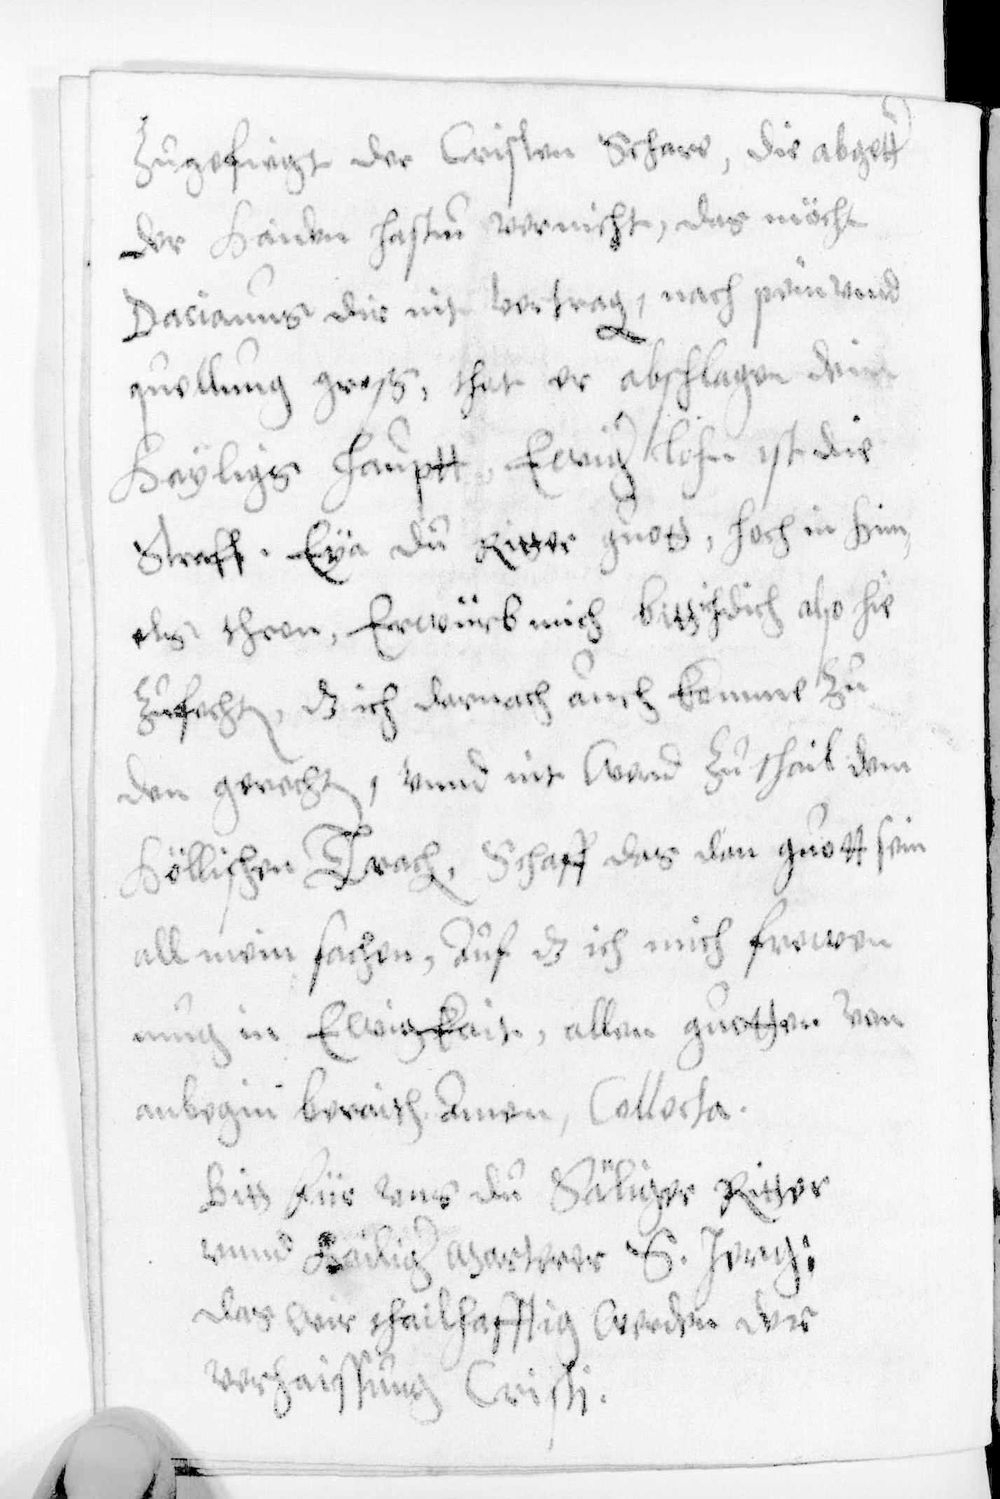 Zugefiegt der Cristen Schare, die abgött
der Haiden hastu vernicht, das möcht
Dacianus dir nit vertrag, nach pein vnnd
quellung gross, that er abschlagen dein
Hayligs haupt, Ewig lohn ist die
Straff. Eya du Ritter guott, hoch in Him,
els thron, Erwürb mich bitt ich dich also hie
zufecht, dz ich darnach auch komme zu
den gerecht, vnnd nit werd zu thail dem
Höllischen Trach, Schaff das dan guott sein
all mein sachen, Auf dz ich mich frewen
mug in Ewigkait, allen guotten von
anbegin beraith. Amen, Collecta.
Bitt für vns du Säliger Ritter
vnnd Heilig Marterer S. Jerg:
das wir thailhafftig werden der
verhaissung Cristi.